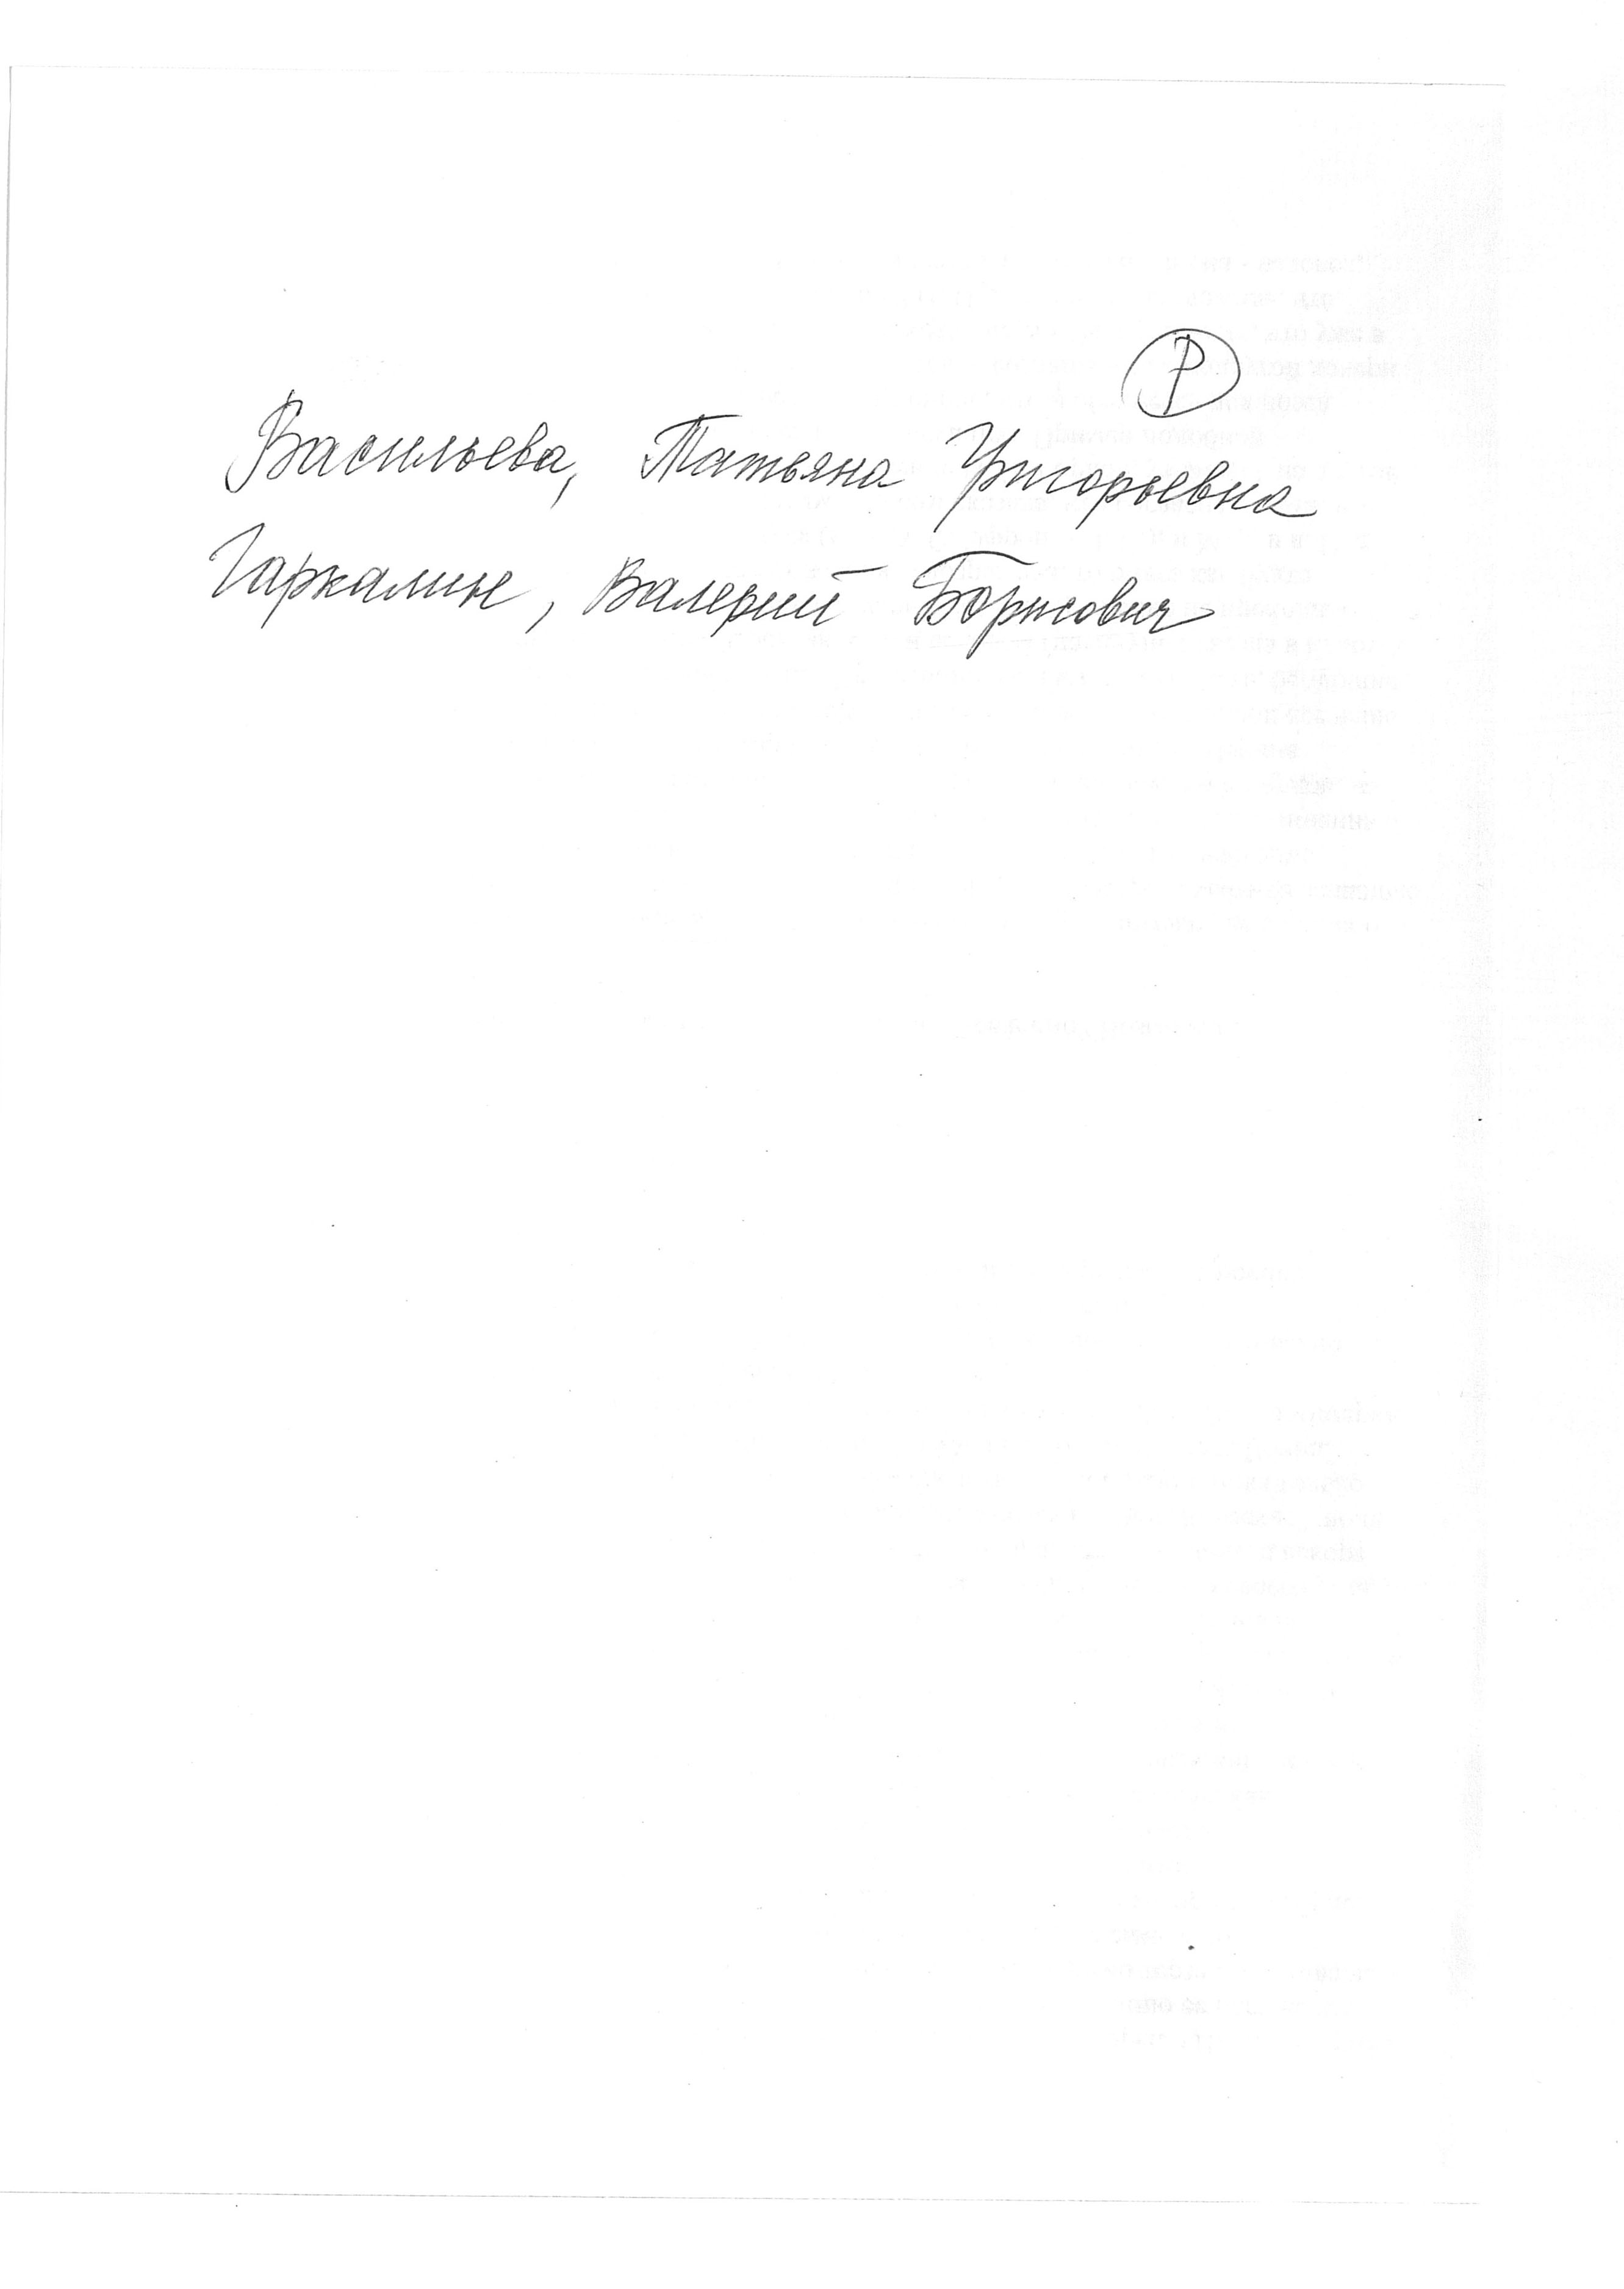 Р
Васильева, Татьяна Григорьевна
Гаркалин, Валерий Борисович